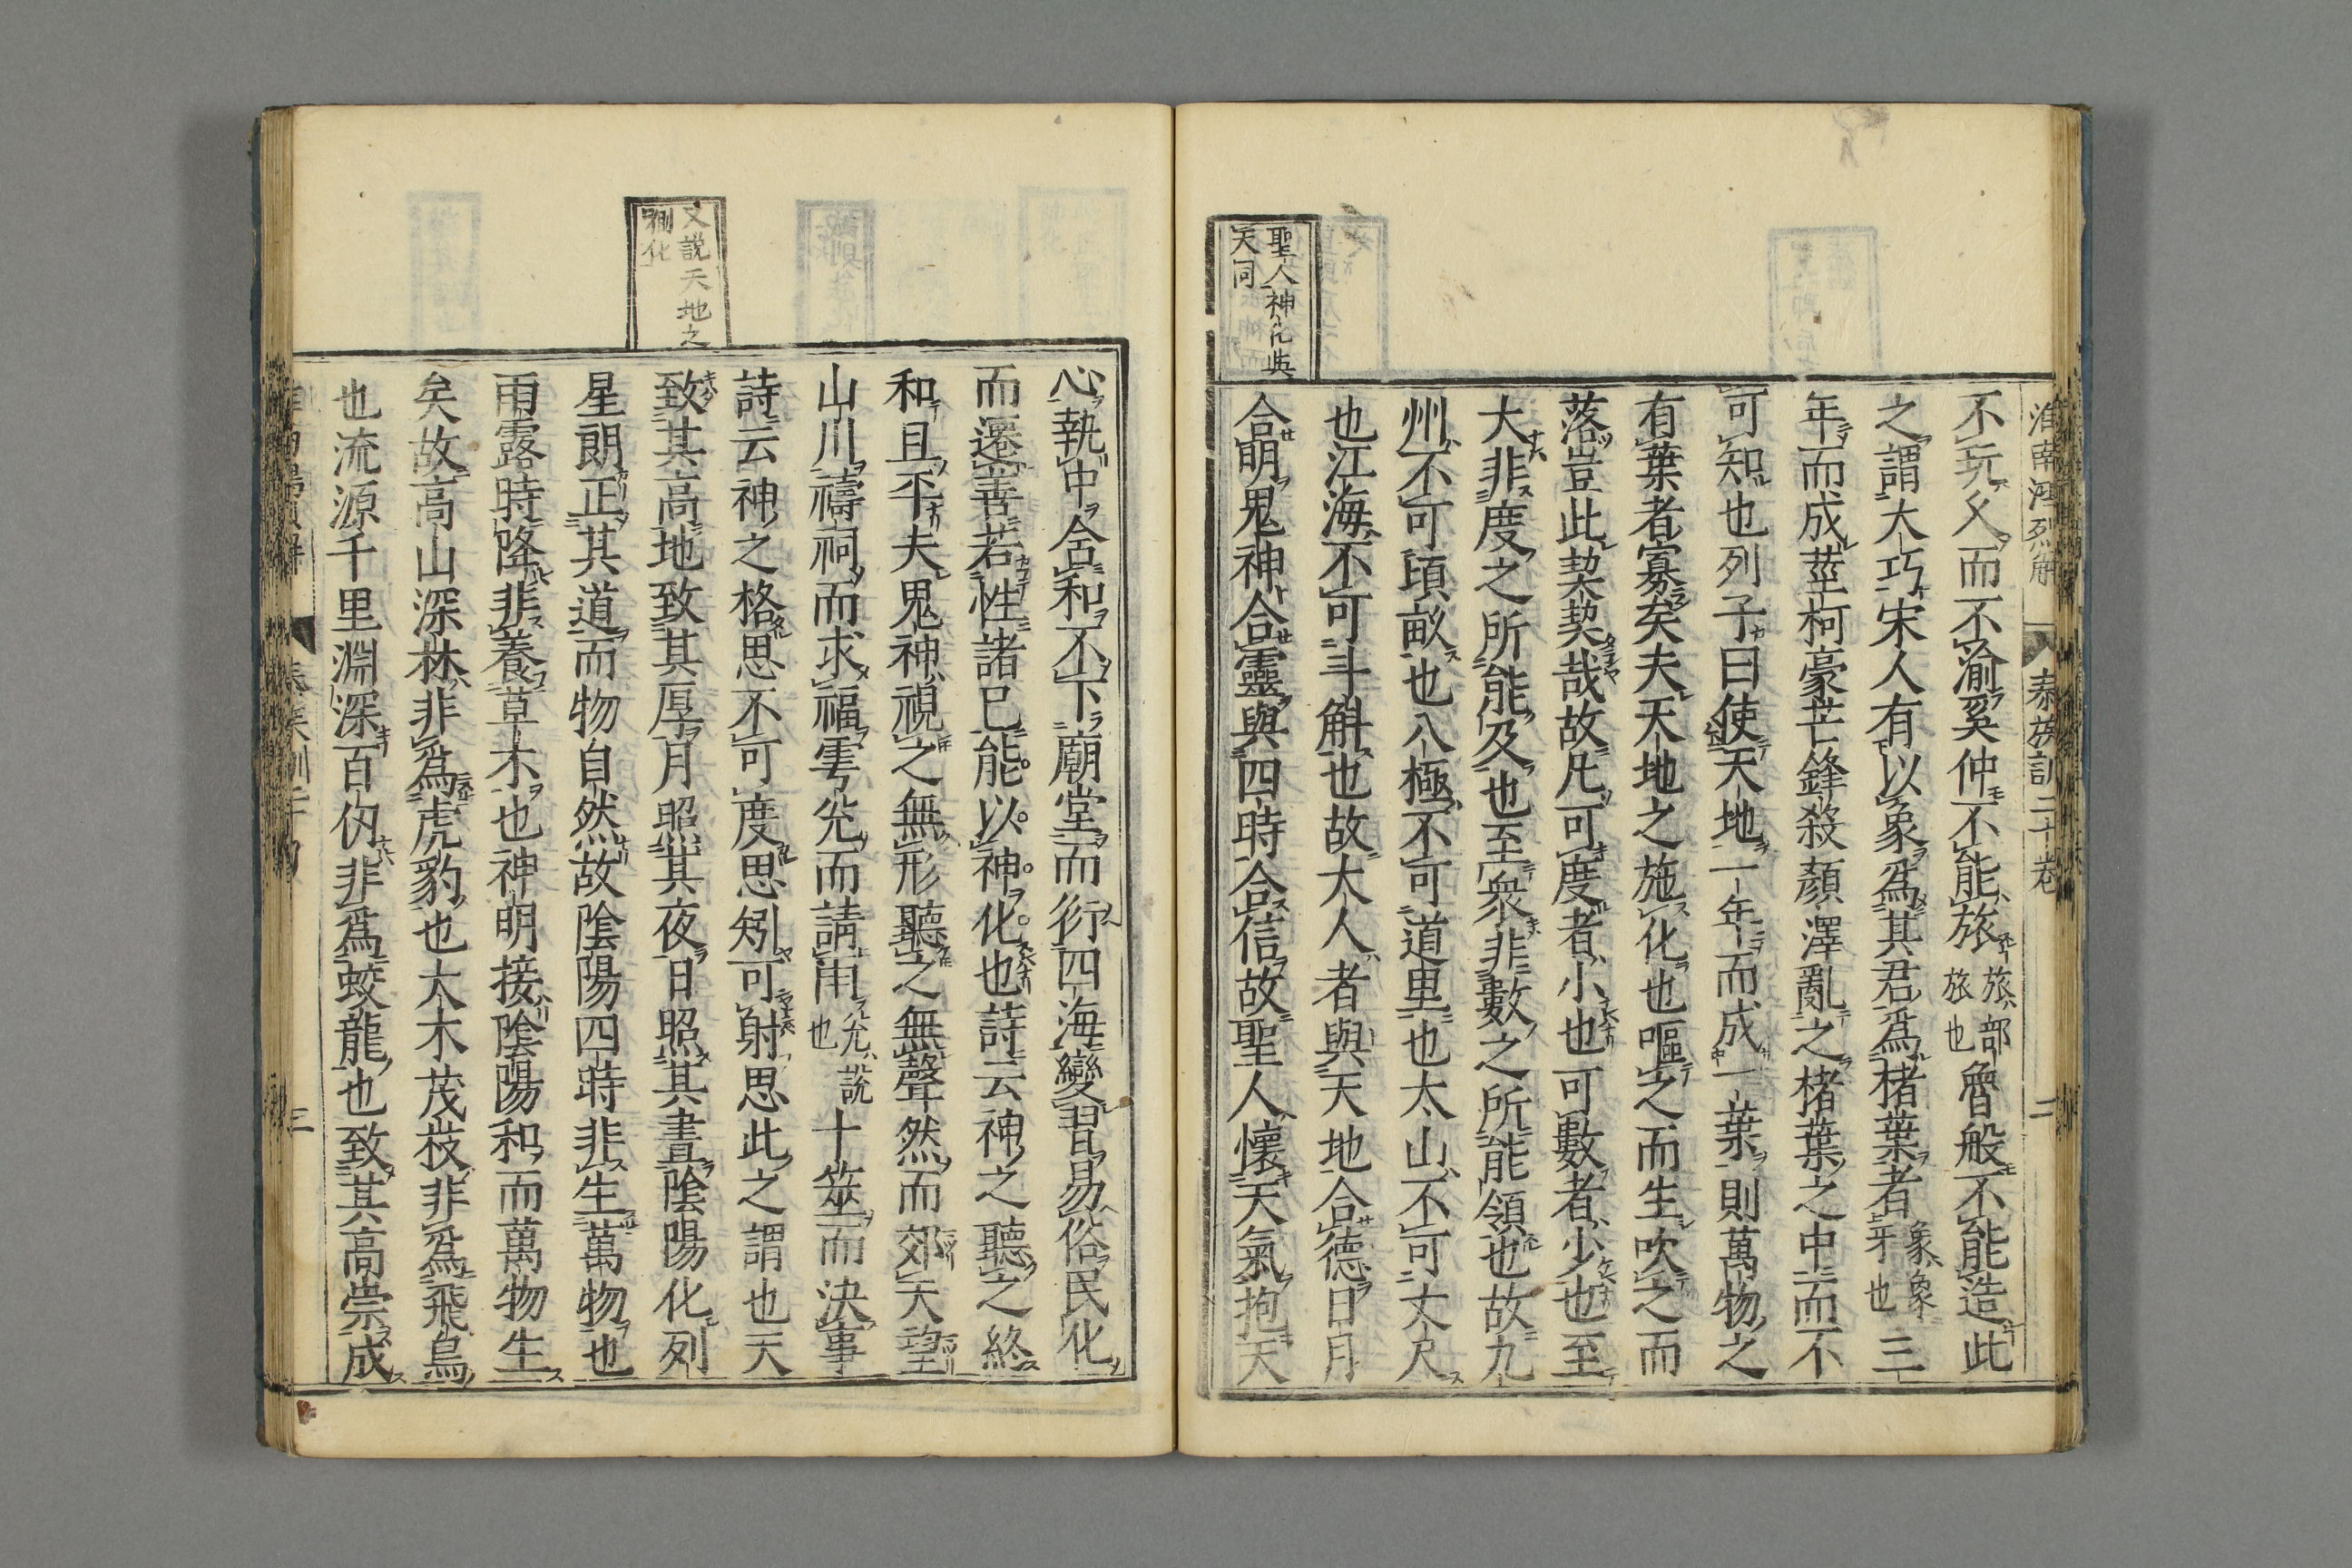 淮南鴻烈解 泰族訓二十卷 二
不玩父而不渝奚仲不能旅旅部旅也魯般不能造此
之謂大巧宋人有以象爲其君爲楮葉者象象牙也三
年而成莖柯豪芒鋒殺顏澤亂之楮葉之中而不
可知也列子曰使天地一年而成一葉則萬物之
有葉者寡矣夫天地之施化也嘔之而生吹之而
落豈此契契哉故凡可度者小也可數者少也至
大非度之所能及也至衆非數之所能領也故九
州不可頃畝也八極不可道里也太山不可丈尺
也江海不可斗斛也故大人者與天地合德日月
合明鬼神合靈與四時合信故聖人懷天氣抱天
聖人神化與
天同
心執中含和不下廟堂而衍四海變習易俗民化
而遷善若性諸己能以神化也詩云神之聽之終
和且平夫鬼神視之無形聽之無聲然而郊天望
山川禱祠而求福雩兊而請雨兊說也十筮而決事
詩云神之格思不可度思矧可射思此之謂也天
致其高地致其厚月照其夜日照其晝陰陽化列
星朗正其道而物自然故陰陽四時非生萬物也
雨露時降非養草木也神明接陰陽和而萬物生
矣故高山深林非爲虎豹也大木茂枝非爲飛鳥
也流源千里淵深百仭非爲蛟龍也致其高崇成
又說天地之
神化
三